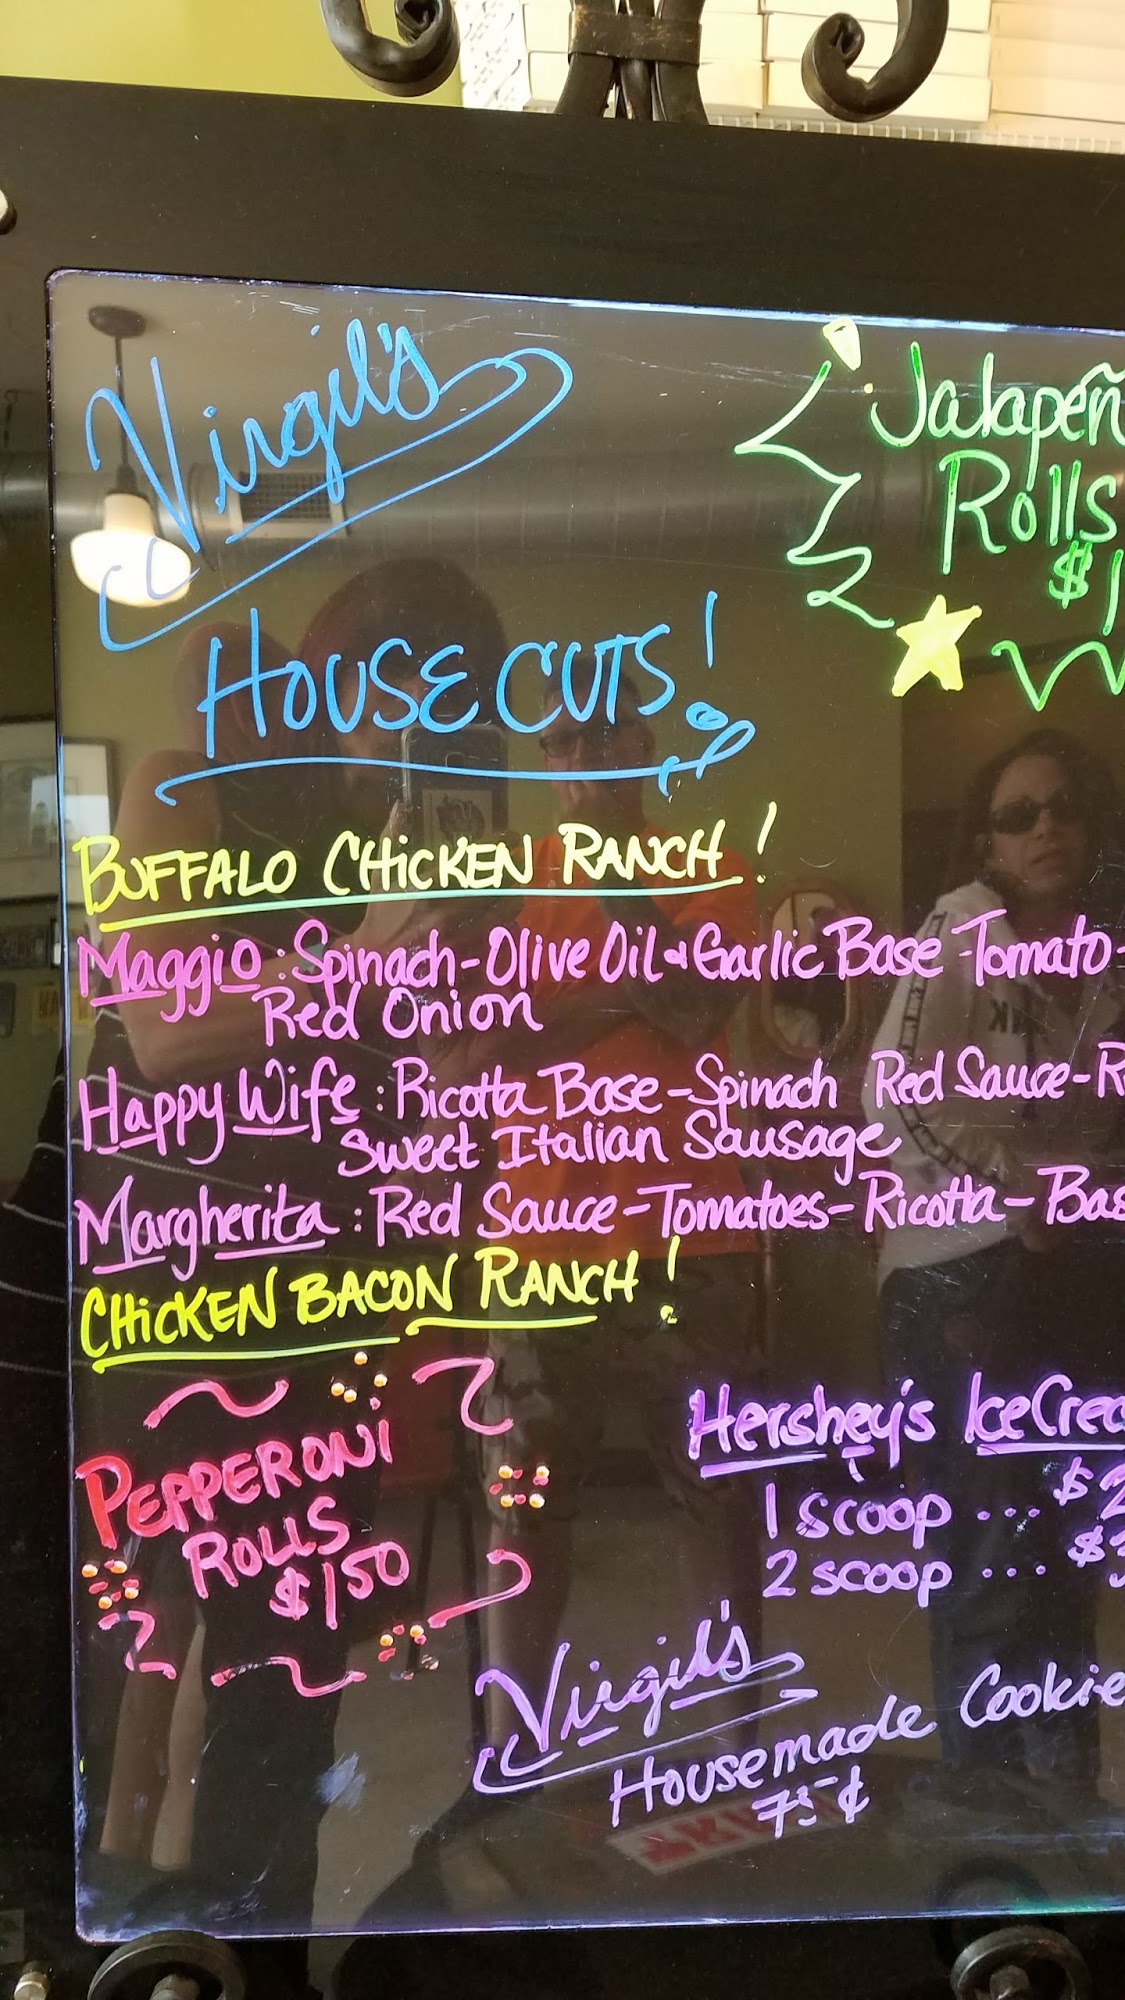 Virgil's
HOUSE CUTS!
Jalapeñ
Rolls
$1
BUFFALO CHiCKEN RANCH!
Maggio: Spinach-Olive Oil & Garlic Base Tomato-
Red Onion
Happy Wife: Ricotta Base-Spinach Red Sauce-R
Sweet Italian Sausage
Margherita: Red Sauce-Tomatoes-Ricotta-Bas
CHiCKEN BACON RANCH!
PEPPERONI
ROLLS
$150
Hershey's Ice Crea
1 scoop ... $2
2 scoop ... $3
Virgil's
Housemade Cookie
75¢